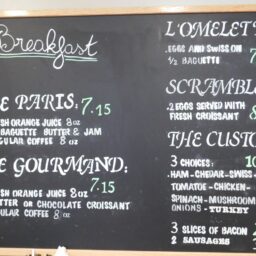 Breakfast
E PARIS: 7.15
SH ORANGE JUICE 8oz
BAGUETTE BUTTER & JAM
GULAR COFFEE 8 oz
E GOURMAND:
7.15
SH ORANGE JUICE 8oz
TTER or CHOCOLATE CROISSANT
GULAR COFFEE 8 oz
L'OMELETT
EGGS AND SWISS ON
1/2 BAGUETTE
SCRAMBL
2 EGGS SERVED WITH
FRESH CROISSANT
THE CUSTO
3 CHOICES: 10
HAM - CHEDAR - SWISS -
TOMATOE - CHICKEN -
SPINACH - MUSHROOM
ONIONS - TURKEY
3 SLICES OF BACON
2 SAUSAGES